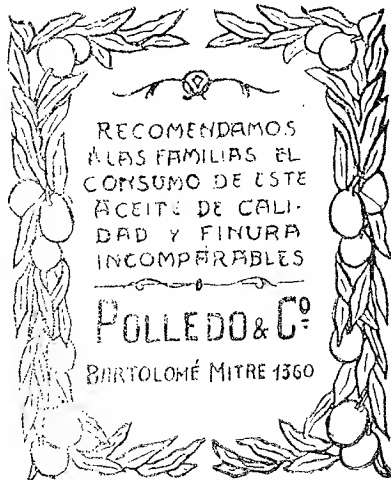 RECOMENDAMOS
A LAS FAMILIAS EL
CONSUMO DE ESTE
ACEITE DE CALI-
DAD Y FINURA
INCOMPARABLES
POLLEDO & Cº
BARTOLOMÉ MITRE 1360